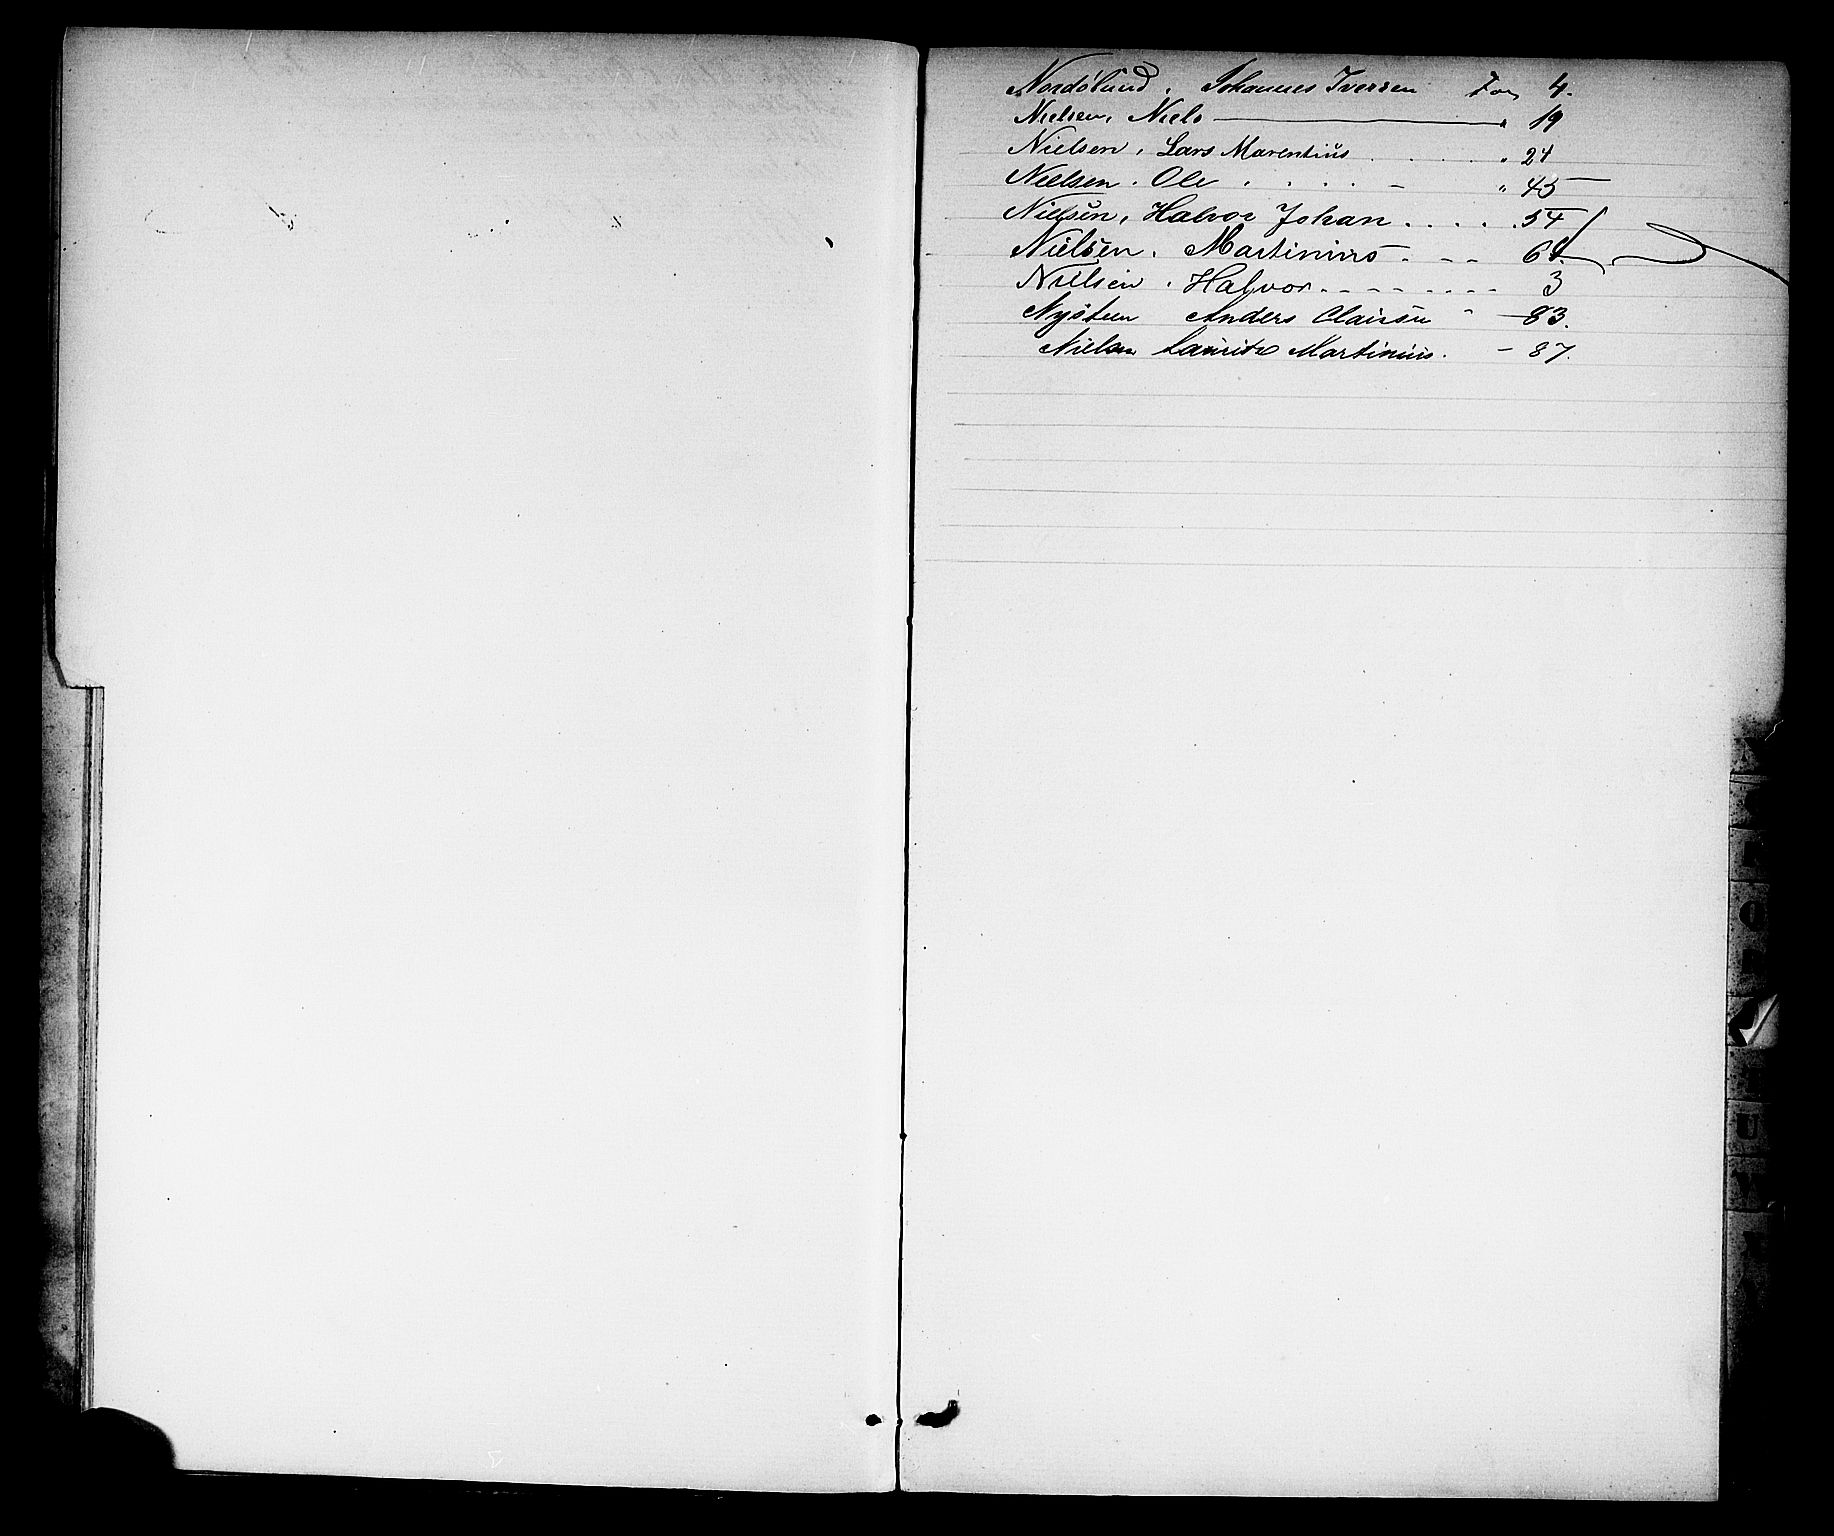 Nordølund, Johannes Iversen Fol 4.
Nielsen, Niels " 19
Nielsen, Lars Marentius . . . . . " 24
Nielsen. Ole . . . . - " 45
Nielsen, Halvor Johan . . . . . 54
Nielsen. Martinius - . - - 61.
Nielsen. Halvor. - - - - - - - - 3
Nysteen Anders Clausen " - 83.
Nielsen Lauritz Martinius. - 87.
O
U